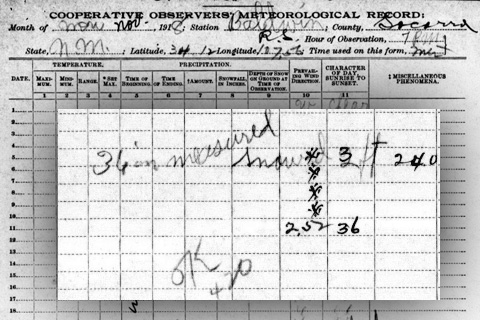 COOPERATIVE OBSERVERS' METEOROLOGICAL RECORD;
Month of Nov., 1918; Station Baldwin; County, Socorro
R.S. Hour of Observation,
State, N.M.; Latitude, 34 12 Longitude, Time used on this form,
TEMPERATURE. PRECIPITATION.
DATE. MAXIMUM. MINIMUM. RANGE. *SET MAX. TIME OF BEGINNING. TIME OF ENDING. †AMOUNT. SNOWFALL IN INCHES. DEPTH OF SNOW ON GROUND AT TIME OF OBSERVATION. PREVAILING WIND DIRECTION. CHARACTER OF DAY, SUNRISE TO SUNSET. ‡ MISCELLANEOUS PHENOMENA.
1 2 3 4 5 6 7 8 9 10
1
2
3
4
36 in measured snow 3 ft 240
5
6
7
8
9
10
11 2.52 36
12
13
14
OK
15
16
17
18